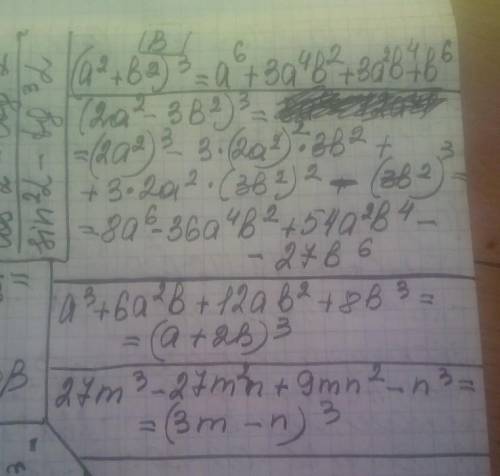 |B|
(a² + b²)³ = a⁶ + 3a⁴b² + 3a²b⁴ + b⁶
(2a² - 3b²)³ =
= (2a²)³ - 3·(2a²)²·3b² +
+ 3·2a²·(3b²)² - (3b²)³ =
= 8a⁶ - 36a⁴b² + 54a²b⁴ -
- 27b⁶
a³ + 6a²b + 12ab² + 8b³ =
= (a + 2b)³
27m³ - 27m²n + 9mn² - n³ =
= (3m - n)³
sin²α - tg³α
=
B
3 -